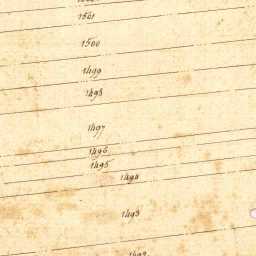 1501
1500
1499
1498
1497
1496
1495
1494
1493